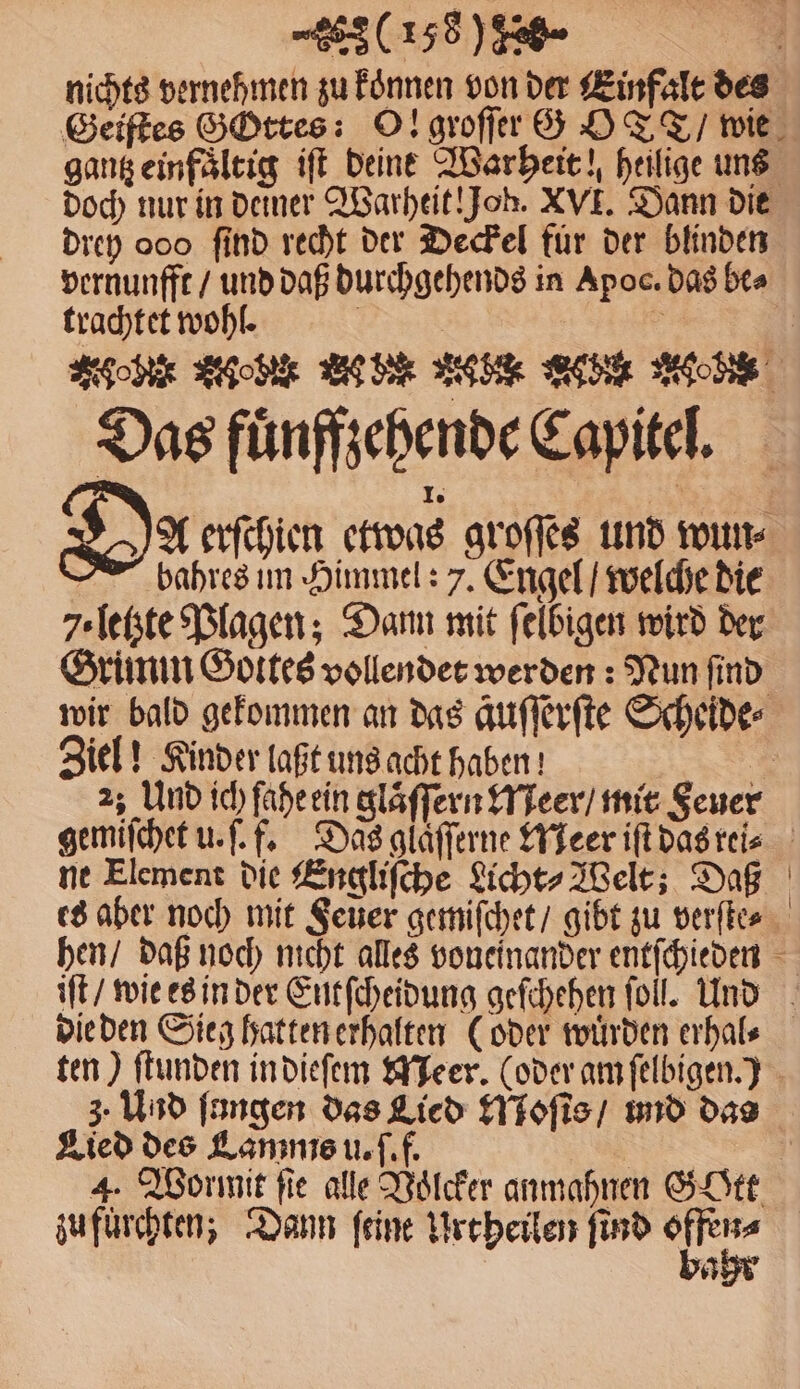 (158)
nichts vernehmen zu koͤnnen von der Einfalt des
Geiſtes GOttes: O! groſſer GOTT/ wie
gantz einfaͤltig iſt deine Warheit!, heilige uns
doch nur in deiner Warheit! Joh. XVI. Dann die
drey 000 ſind recht der Deckel fuͤr der blinden
vernunfft / und daß durchgehends in Apoc. das be⸗
trachtet wohl.
Das fuͤnffzehende Capitel.
I.
DA erſchien etwas groſſes und wun⸗
bahres im Himmel: 7. Engel / welche die
7. letzte Plagen; Dann mit ſelbigen wird der
Grimm Gottes vollendet werden: Nun ſind
wir bald gekommen an das aͤuſſerſte Scheide⸗
Ziel! Kinder laßt uns acht haben!
2; Und ich ſahe ein glaͤſſern Meer/ mit Feuer
gemiſchet u. ſ. f. Das glaͤſſerne Meer iſt das rei⸗
ne Element die Engliſche Licht⸗Welt; Daß
es aber noch mit Feuer gemiſchet/ gibt zu verſte⸗
hen/ daß noch nicht alles voneinander entſchieden
iſt / wie es in der Entſcheidung geſchehen ſoll. Und
die den Sieg hatten erhalten (oder wuͤrden erhal⸗
ten) ſtunden in dieſem Meer. (oder am ſelbigen.)
3. Und ſungen das Lied Moſis/ und das
Lied des Lamms u. ſ. f.
4. Wormit ſie alle Voͤlcker anmahnen GOtt
zu fuͤrchten; Dann ſeine Urtheilen ſind offen⸗
bahr